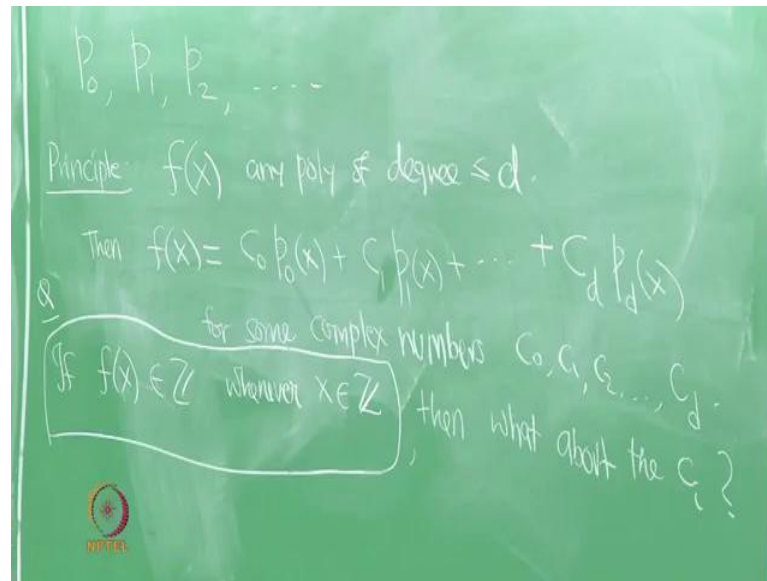 p₀, p₁, p₂, .....
Principle: f(x) any poly of degree ≤ d.
Then f(x) = c₀p₀(x) + c₁p₁(x) + ... + c_d p_d(x)
for some complex numbers c₀, c₁, c₂, ..., c_d.
Q
If f(x) ∈ ℤ whenever x ∈ ℤ, then what about the c_i?
NPTEL